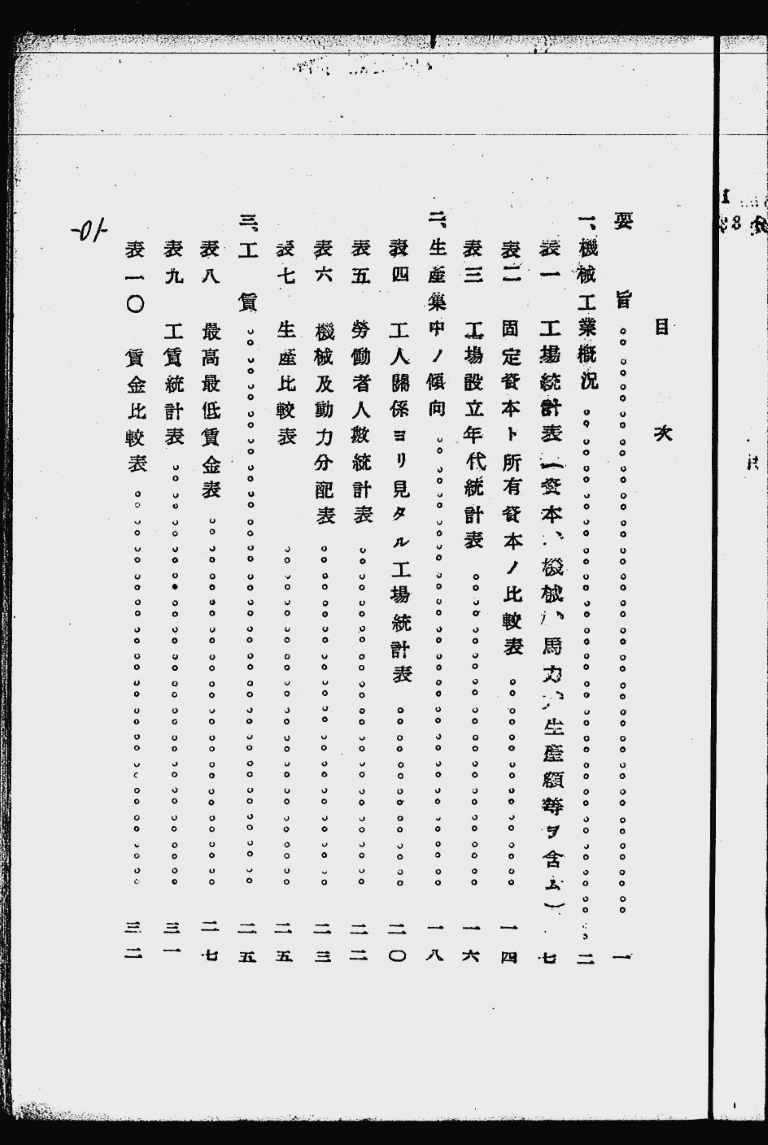 目次
要旨。。。。。。。。。。。。。。。。。。。。。。一
一、機械工業概況。。。。。。。。。。。。。。。。。。。。二
表一 工場統計表(資本、機械、馬力、生産額等ヲ含ム)七
表二 固定資本ト所有資本ノ比較表。。。。。。。。一四
表三 工場設立年代統計表。。。。。。。。。。。。一六
二、生産集中ノ傾向。。。。。。。。。。。。。。。。。一八
表四 工人關係ヨリ見タル工場統計表。。。。。。。二〇
表五 勞働者人數統計表。。。。。。。。。。。。。二二
表六 機械及動力分配表。。。。。。。。。。。。。二三
表七 生産比較表。。。。。。。。。。。。。二五
三、工賃。。。。。。。。。。。。。。。。。。。。。二五
表八 最高最低賃金表。。。。。。。。。。。。。。二七
表九 工賃統計表。。。。。。。。。。。。。。。。三一
表一〇 賃金比較表。。。。。。。。。。。。。。。三二
-10-